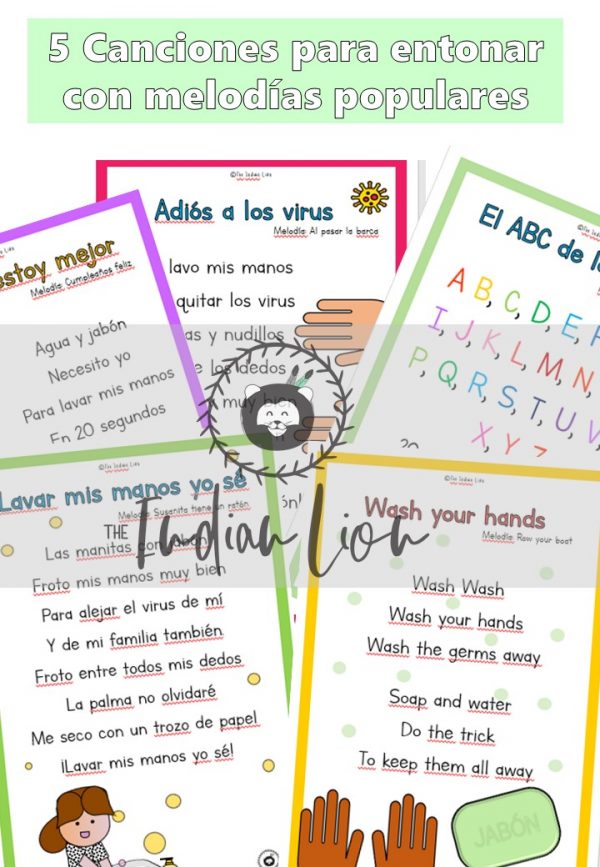 5 Canciones para entonar
con melodías populares
©The Indian Lion
Adiós a los virus
Melodía: Al pasar la barca
lavo mis manos
quitar los virus
as y nudillos
los dedos
muy bien
estoy mejor
Melodía: Cumpleaños feliz
Agua y jabón
Necesito yo
Para lavar mis manos
En 20 segundos
El ABC de
A, B, C, D, E,
I, J, K, L, M, N
P, Q, R, S, T, U, V,
X, Y, Z
THE Indian Lion
©The Indian Lion
Lavar mis manos yo sé
Melodía: Susanita tiene un ratón
Las manitas con jabón
Froto mis manos muy bien
Para alejar el virus de mí
Y de mi familia también
Froto entre todos mis dedos
La palma no olvidaré
Me seco con un trozo de papel
¡Lavar mis manos yo sé!
©The Indian Lion
Wash your hands
Melodía: Row your boat
Wash Wash
Wash your hands
Wash the germs away
Soap and water
Do the trick
To keep them all away
JABÓN